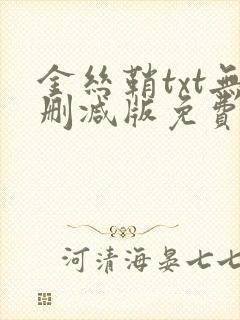 金丝鞘txt無
删减版免費
河清海晏七七